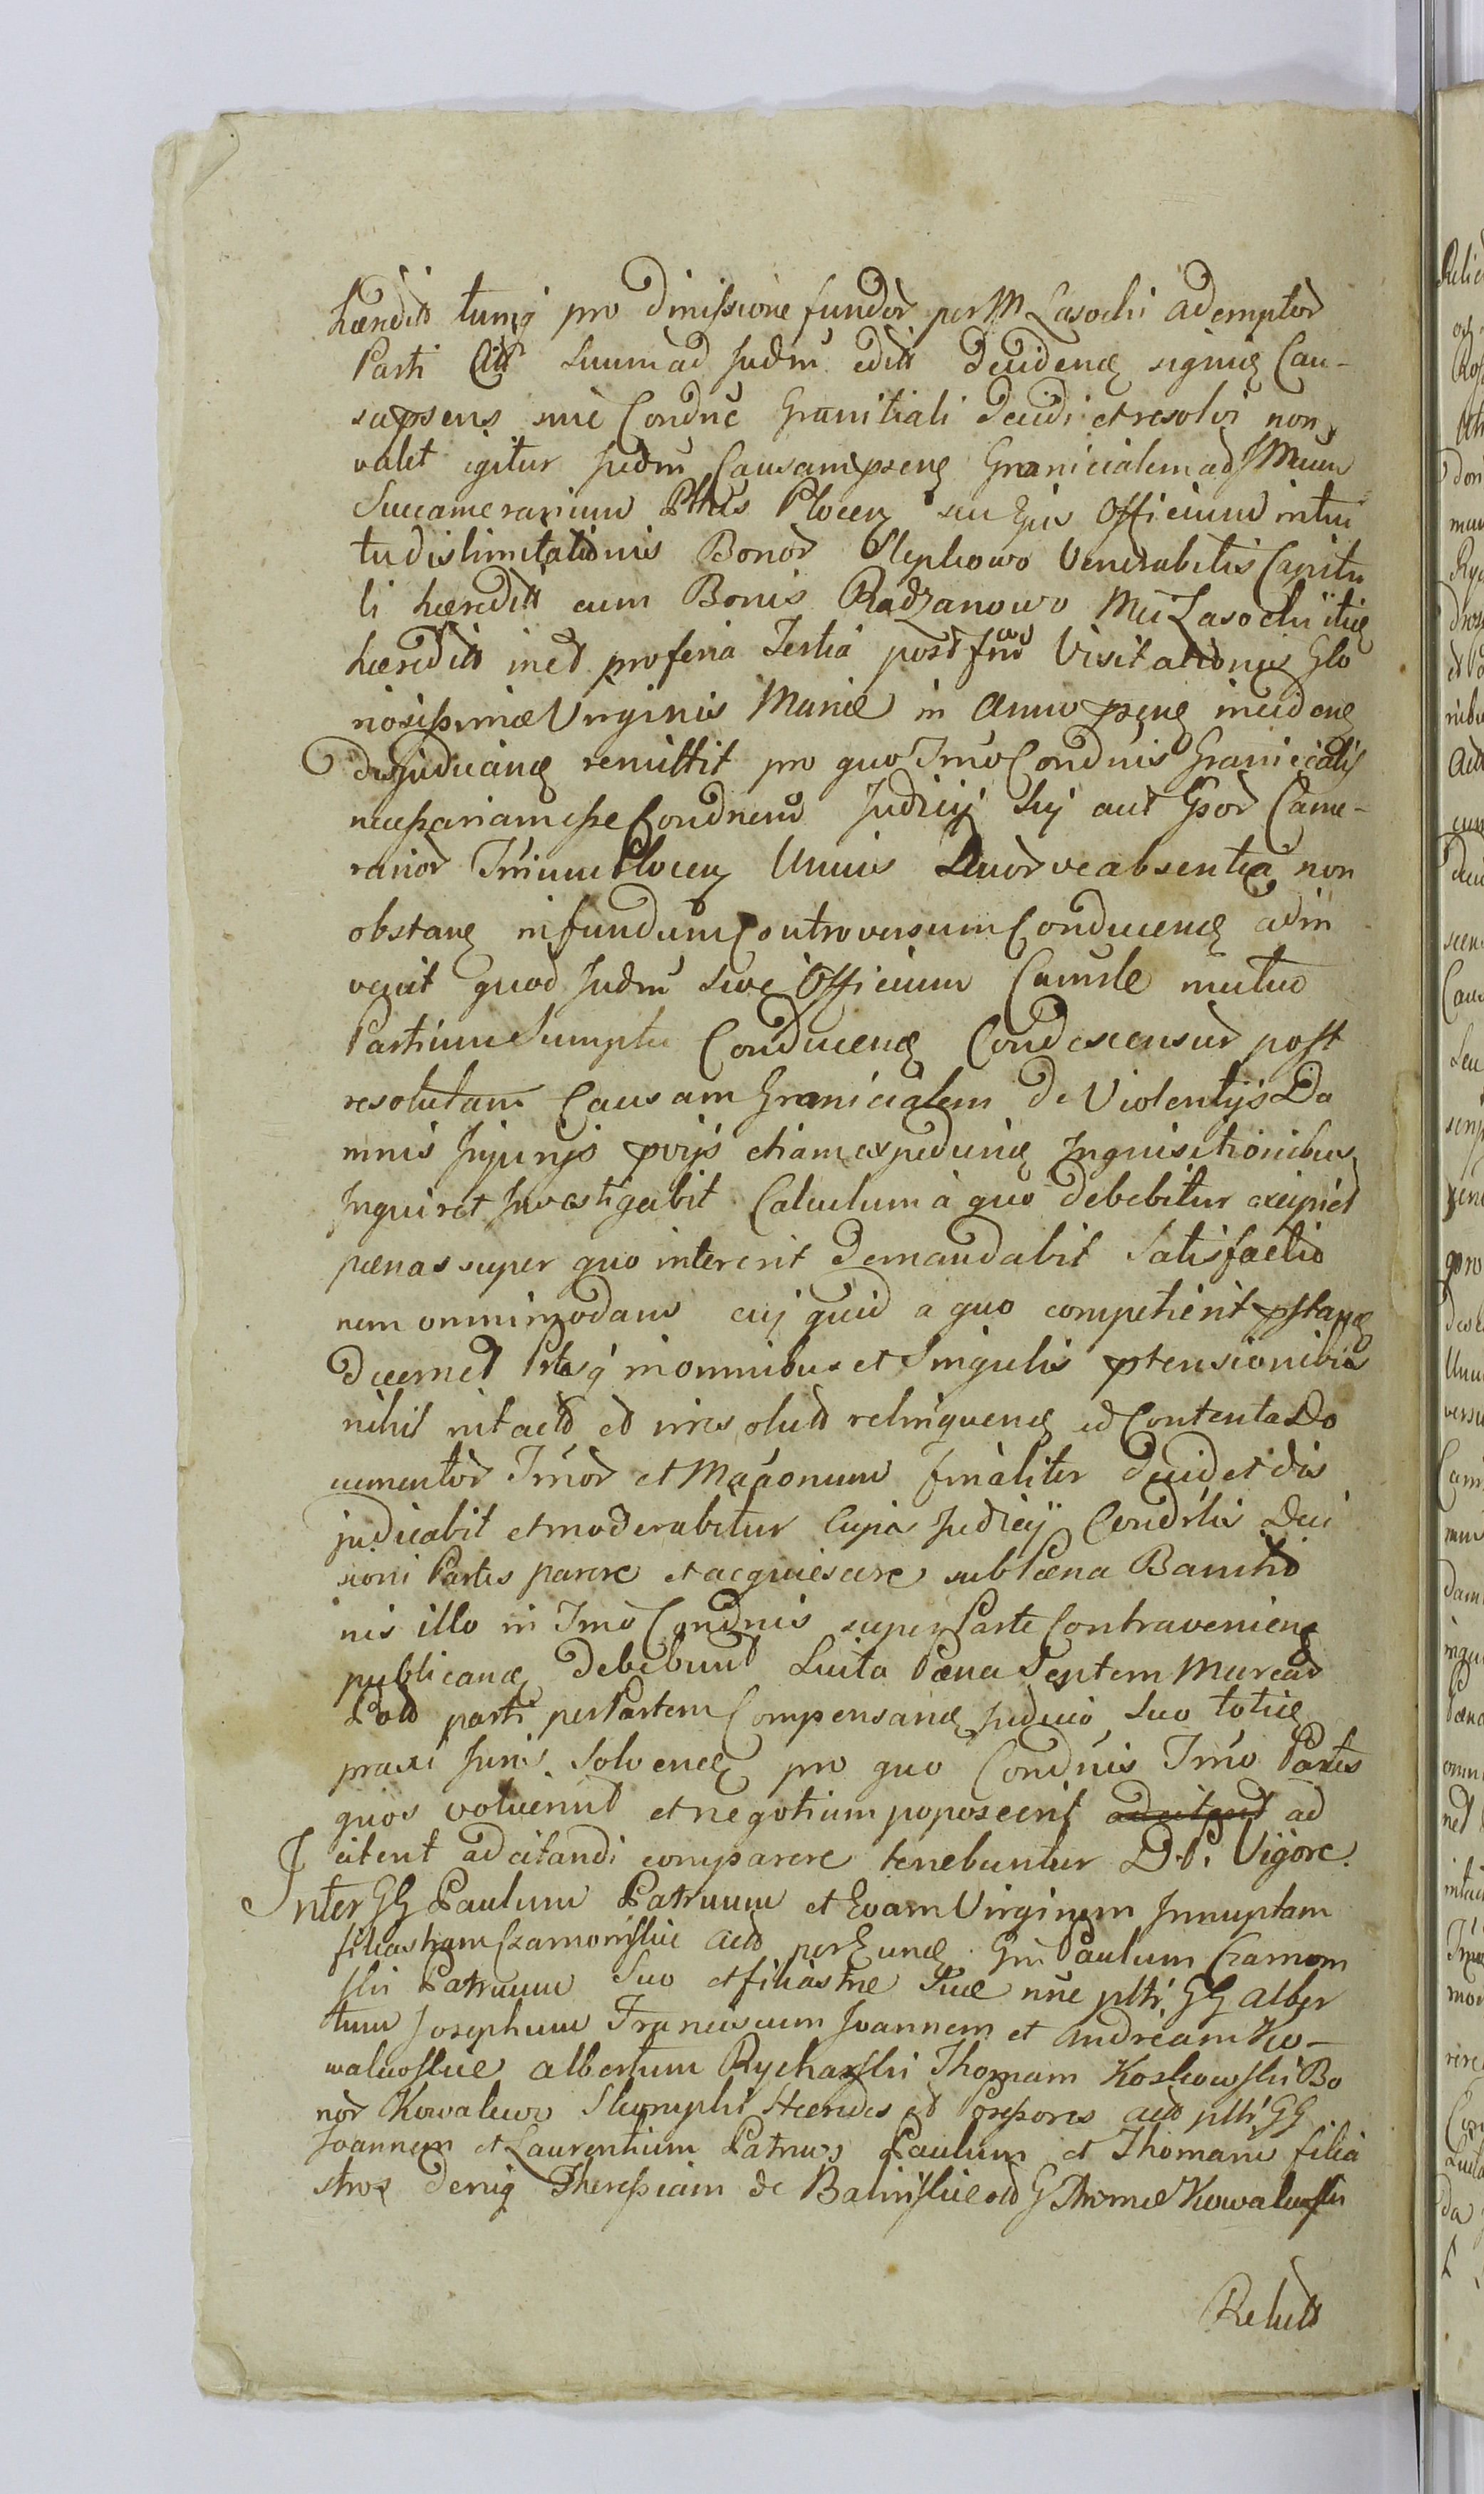 hæredit tumq pro dimissione fundor per M Lasocki ademptor
Parti Citt suum ad Judm editt decidene signie Cau-
sa psens sine Condne Granitiali decidi et resolvi non
valet igitur Judm Causam psene Granicialem ad JMcum
Succamerarium Pttus Plocen seu Ejus Officium intui
tu dislimitationis Bonor Slepkowo Venerabilis Capitu
li hæreditt cum Bonis Radzanowo Mci Lasocki itie
hæreditt inet pro feria Tertia post fm Visitationis Glo
riosissimæ Virginis Mariæ in Anno psene incidene
disjudicane remittit pro quo Tmo Condnis Granicialis
necessariam esse Condnem Judicij Sui aut Gsor Came-
rarior Trium Plocen Unius Duorve absentia non
obstane in fundum Controversum Conducene adin
venit quod Judm sive Officium Camrle mutuo
Partium Sumptu Conducene Condescensur post
resolutam Causam Granicialem de Violentijs Da
mnis Injurijs pvijs etiam expediene Inquisitionibus
Inquiret Investigabit Calculum à quo debebitur accipiet
pænas super quo intererit demandabit Satisfactio
nem omnimodam cuj quid a quo competierit pstane
decernet Ptesq in omnibus et Singulis ptensionibus
nihil intact et irresolut relinquene ad Contenta Do
cumentor Tmor et Maconum finaliter decidet dis
judicabit et moderabitur Cujus Judicij Condrlis Deci
sioni Partes parere et acquiescere sub Pæna Bannitio
nis illo in Tmo Condnis super Parte Contraveniene
publicane debebunt Luita Pæna Septem Marcar
Pold parti per Partem Compensane judicio suo totie
praxi Juris Solvene pro quo Condnis Tmo Partes
quos voluerint et negotium poposcerit adcitent ad
citent adcitandi comparere tenebuntur D. P. Vigore.
Inter GG Paulum Patruum et Evam Virginem Innuptam
filiastram Czarnomskie act per Eune Gm Paulum Czarnom
ski Patruum Suo et filiastræ Suæ nne pltr GG Alber
tum Josephum Franciscum Joannem et Andream Ko-
walewskie Albertum Rycharski Thomam Koskowski Bo
nor Kowalewo Skorupki Hæredes et Possores act pltr GG
Joannem et Laurentium Patruos Paulum et Thomam filia
stros deniq Theressiam de Balinskie od G Thomæ Kowalewski
Relictt